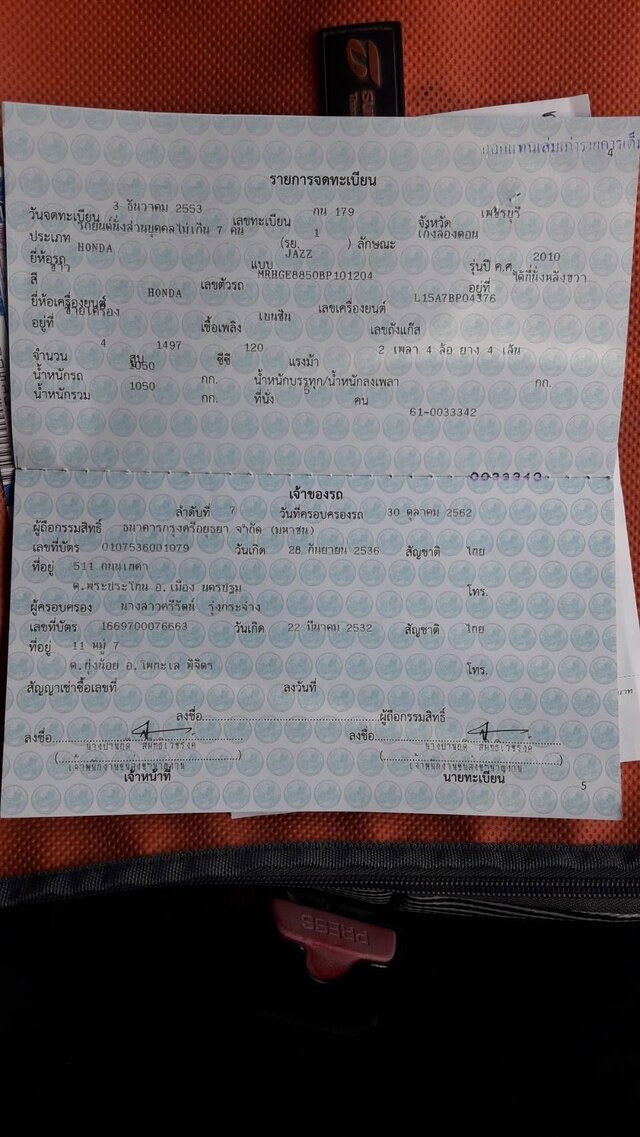 ออกแทนเล่มเก่ารายการเต็ม
4
รายการจดทะเบียน
วันจดทะเบียน 3 ธันวาคม 2553 เลขทะเบียน กน 179 จังหวัด เพชรบุรี
ประเภท รถยนต์นั่งส่วนบุคคลไม่เกิน 7 คน (รย. 1 ) ลักษณะ เก๋งสองตอน
ยี่ห้อรถ HONDA แบบ JAZZ รุ่นปี ค.ศ. 2010
สี ขาว เลขตัวรถ MRHGE8850BP101204 อยู่ที่ ใต้ที่นั่งหลังขวา
ยี่ห้อเครื่องยนต์ HONDA เลขเครื่องยนต์ L15A7BP04376
อยู่ที่ ซ้ายเครื่อง เชื้อเพลิง เบนซิน เลขถังแก๊ส
จำนวน 4 สูบ 1497 ซีซี 120 แรงม้า 2 เพลา 4 ล้อ ยาง 4 เส้น
น้ำหนักรถ 1050 กก. น้ำหนักบรรทุก/น้ำหนักลงเพลา กก.
น้ำหนักรวม 1050 กก. ที่นั่ง 5 คน
61-0033342
เจ้าของรถ
ลำดับที่ 7 วันที่ครอบครองรถ 30 ตุลาคม 2562
ผู้ถือกรรมสิทธิ์ ธนาคารกรุงศรีอยุธยา จำกัด (มหาชน)
เลขที่บัตร 0107536001079 วันเกิด 28 กันยายน 2536 สัญชาติ ไทย
ที่อยู่ 511 ถนนเทศา
ต.พระประโทน อ.เมือง นครปฐม โทร.
ผู้ครอบครอง นางสาวศรีรัตน์ รุ่งกระจ่าง
เลขที่บัตร 1669700076663 วันเกิด 22 มีนาคม 2532 สัญชาติ ไทย
ที่อยู่ 11 หมู่ 7
ต.ทุ่งน้อย อ.โพทะเล พิจิตร โทร.
สัญญาเช่าซื้อเลขที่ ลงวันที่
ลงชื่อ ผู้ถือกรรมสิทธิ์
ลงชื่อ ลงชื่อ
เจ้าพนักงานขนส่งชำนาญงาน เจ้าพนักงานขนส่งชำนาญงาน
เจ้าหน้าที่ นายทะเบียน
5
PRESS